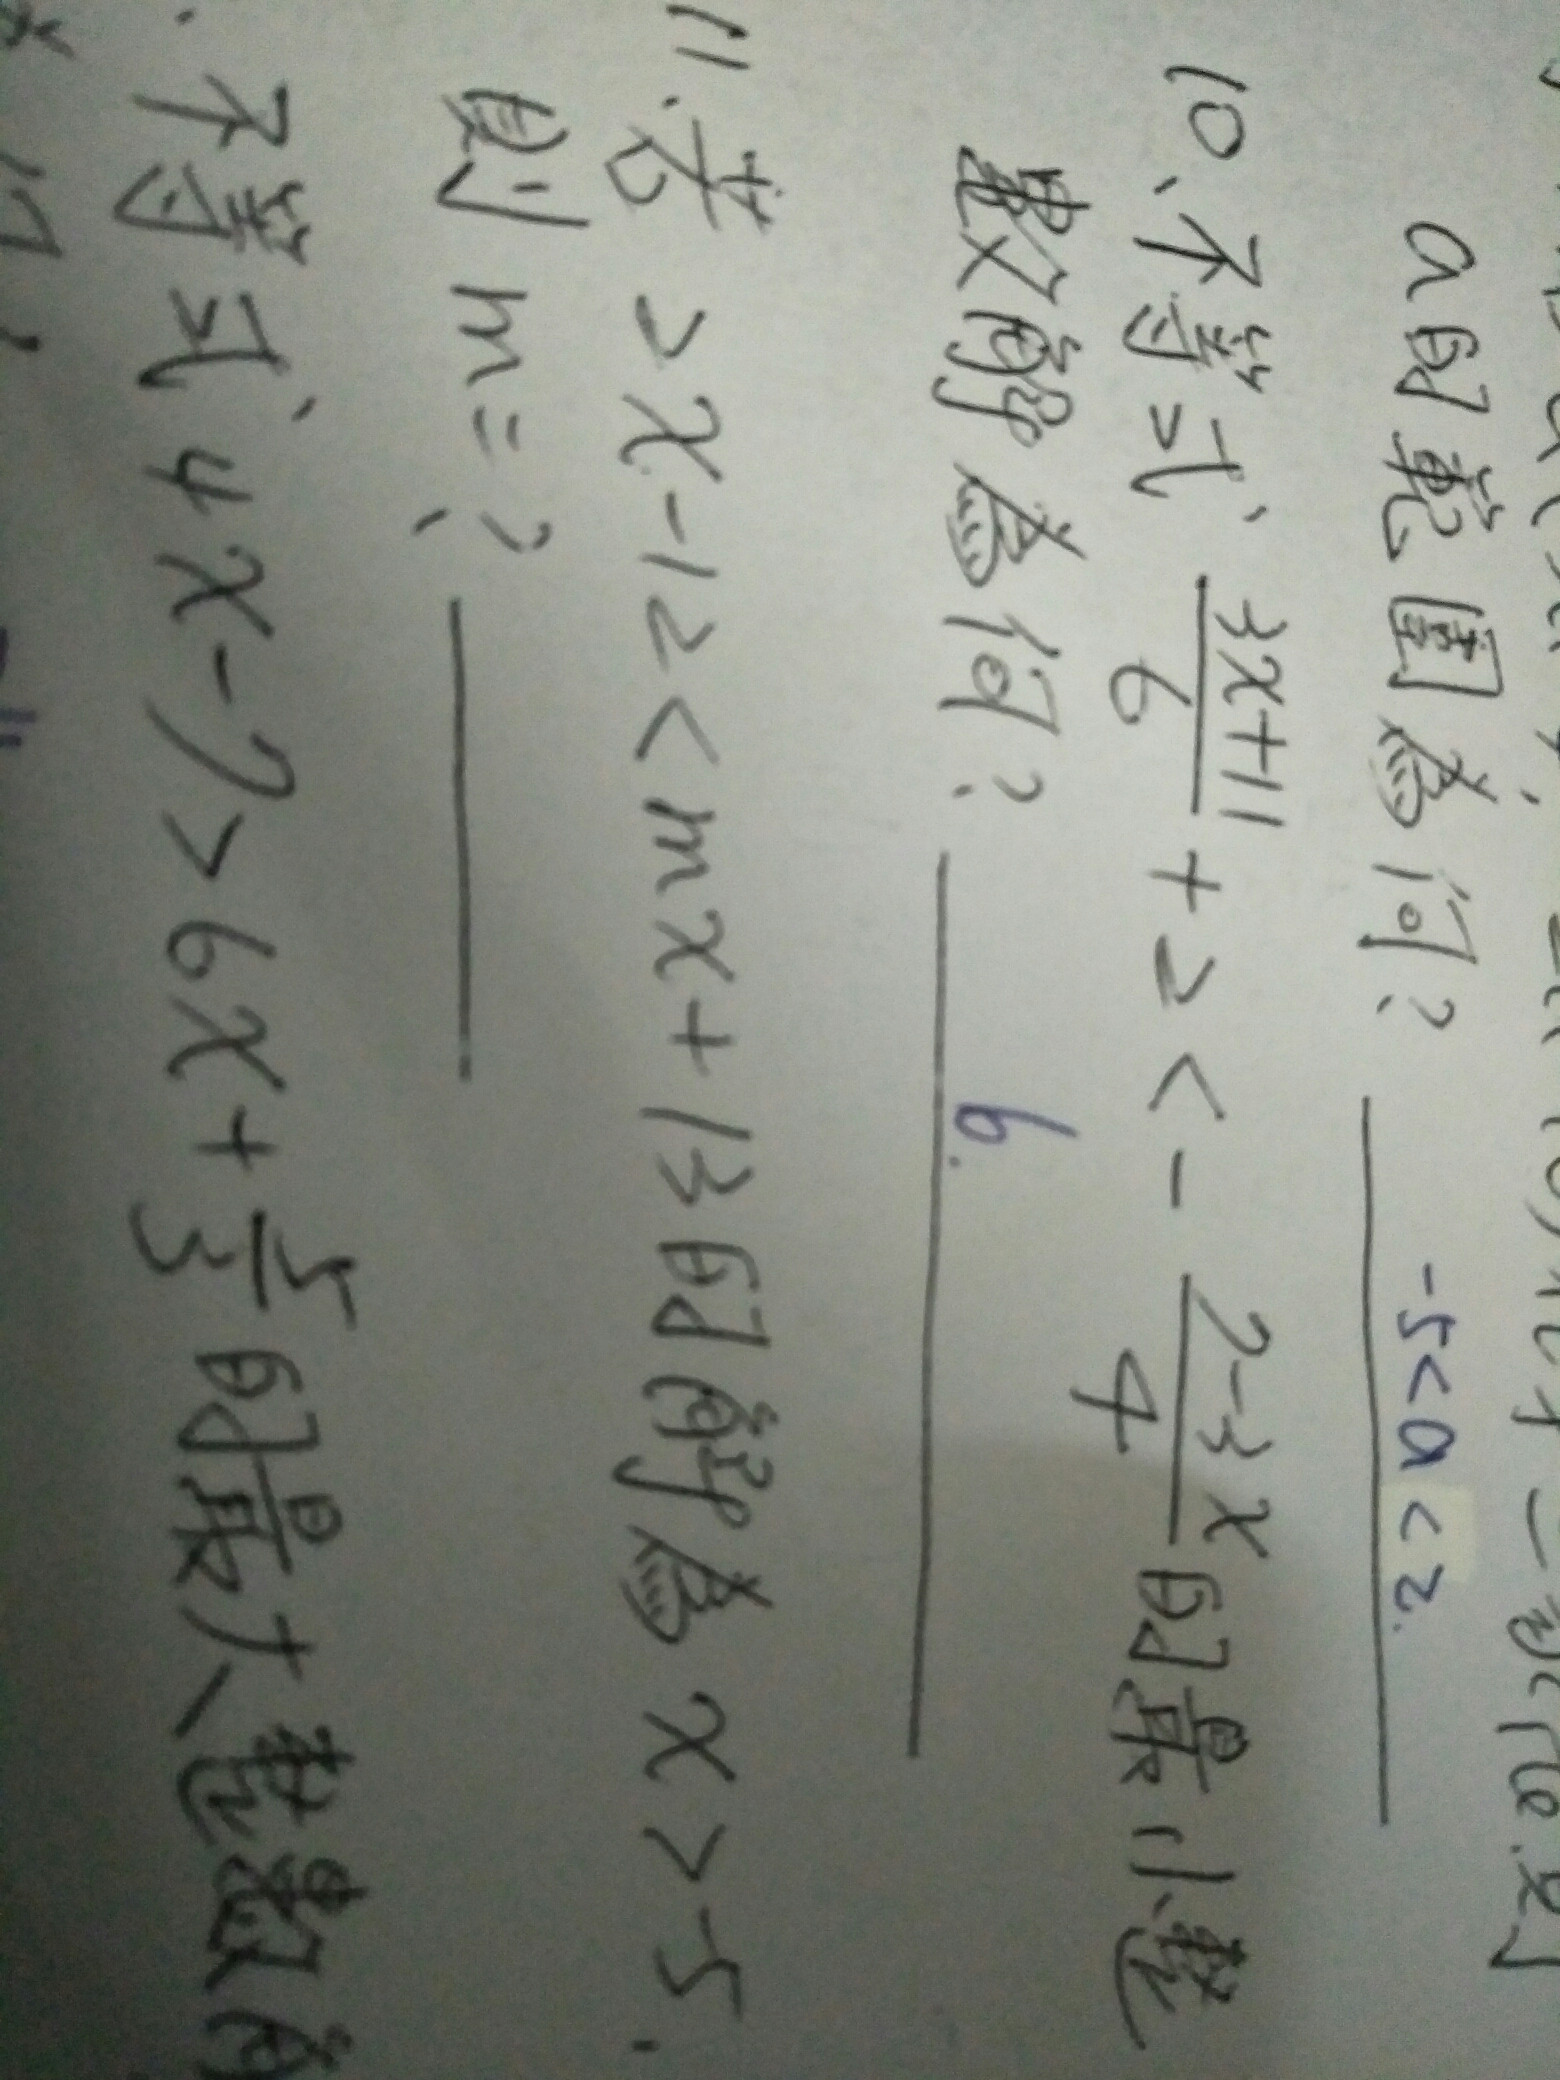 a的範圍為何? -5<a<2.
10、不等式、3x+11/6 + 2 < - 2-3x/4 的最小整
數解為何? 6.
11.若 2x-12<mx+13的解為 x>-5.
則m=?、
不等式、4x-7>6x+5/3的最大整數解